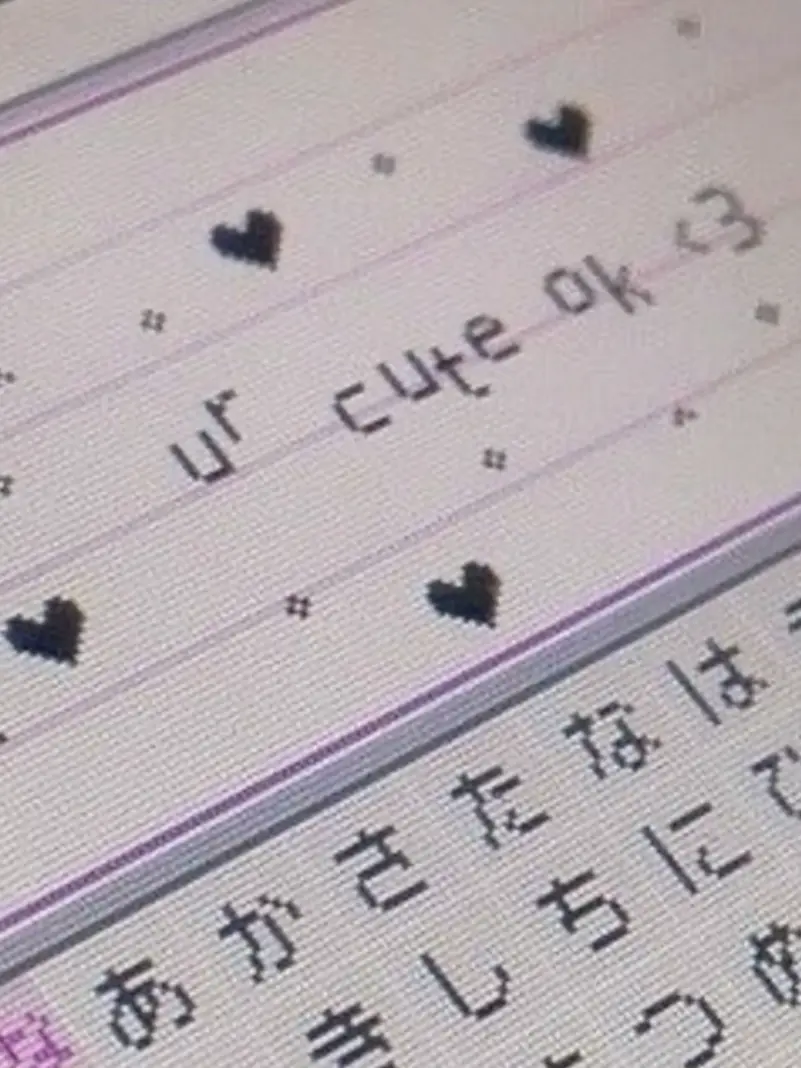 ur cute ok <3
あかさたなは
きしちにひ
つめ